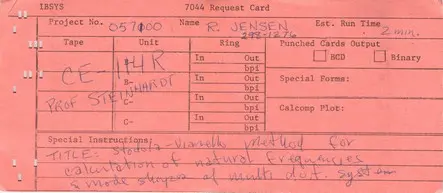 IBSYS 7044 Request Card
Project No. 057100 Name R. JENSEN Est. Run Time
298-1276 2 min.
Tape Unit Ring Punched Cards Output
CE-14R In Out BCD Binary
bpi
PROF STEINHARDT B- In Out Special Forms:
bpi
In Out Calcomp Plot:
C- bpi
Special Instructions:
TITLE: Stodola-Vianello method for
calculation of natural frequencies
& mode shapes of multi d.o.f. system